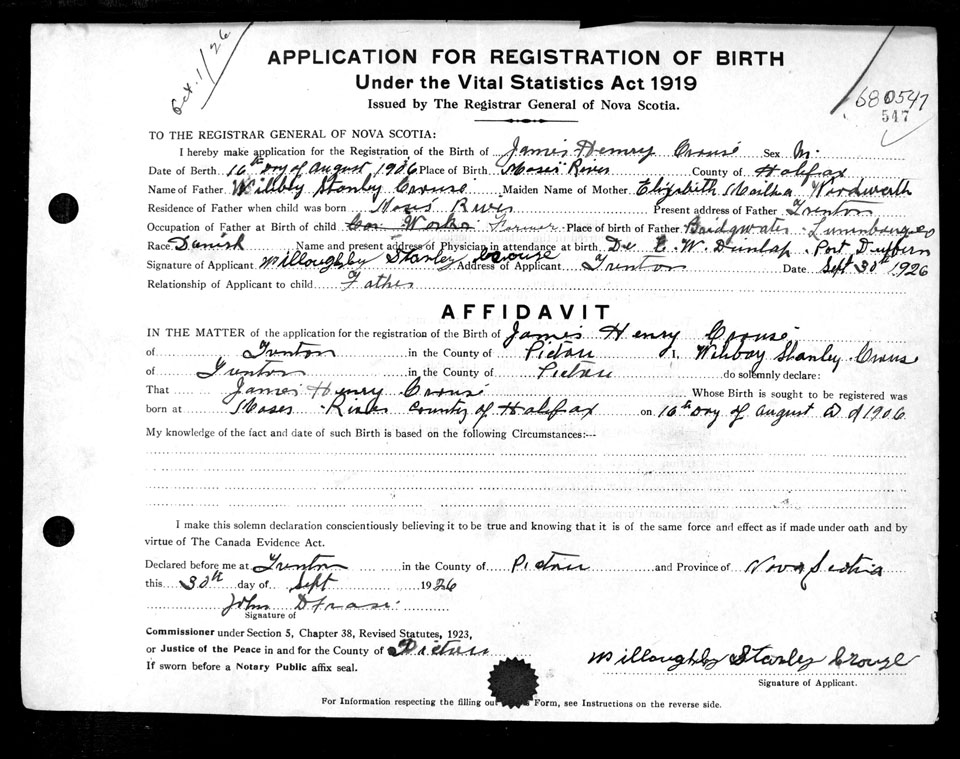 Oct. 1/26
APPLICATION FOR REGISTRATION OF BIRTH
Under the Vital Statistics Act 1919
Issued by The Registrar General of Nova Scotia.
680547
547
TO THE REGISTRAR GENERAL OF NOVA SCOTIA:
I hereby make application for the Registration of the Birth of James Henry Crouse Sex M.
Date of Birth 16th Day of August, 1906 Place of Birth Moses River County of Halifax
Name of Father Stanley Crouse Maiden Name of Mother Elizabeth
Residence of Father when child was born Moses River Present address of Father Trenton
Occupation of Father at Birth of child Farmer Place of birth of Father Bridgwater
Race Danish Name and present address of Physician in attendance at birth Dr W. Dunlap Port Dufferin
Signature of Applicant Willoughby Stanley Crouse Address of Applicant Trenton Date Sept 30th 1926
Relationship of Applicant to child Father
AFFIDAVIT
IN THE MATTER of the application for the registration of the Birth of James Henry Crouse
of Trenton in the County of Pictou I, Stanley Crouse
of Trenton in the County of Pictou do solemnly declare:
That James Henry Crouse Whose Birth is sought to be registered was
born at Moses River County of Halifax on 16th Day of August A. d 1906
My knowledge of the fact and date of such Birth is based on the following Circumstances:---
I make this solemn declaration conscientiously believing it to be true and knowing that it is of the same force and effect as if made under oath and by
virtue of The Canada Evidence Act.
Declared before me at Trenton in the County of Pictou and Province of Nova Scotia
this 30th day of Sept 1926
John D Fraser
Signature of
Commissioner under Section 5, Chapter 38, Revised Statutes, 1923,
or Justice of the Peace in and for the County of Pictou
If sworn before a Notary Public affix seal.
Willoughby Stanley Crouse
Signature of Applicant.
For Information respecting the filling out Form, see Instructions on the reverse side.